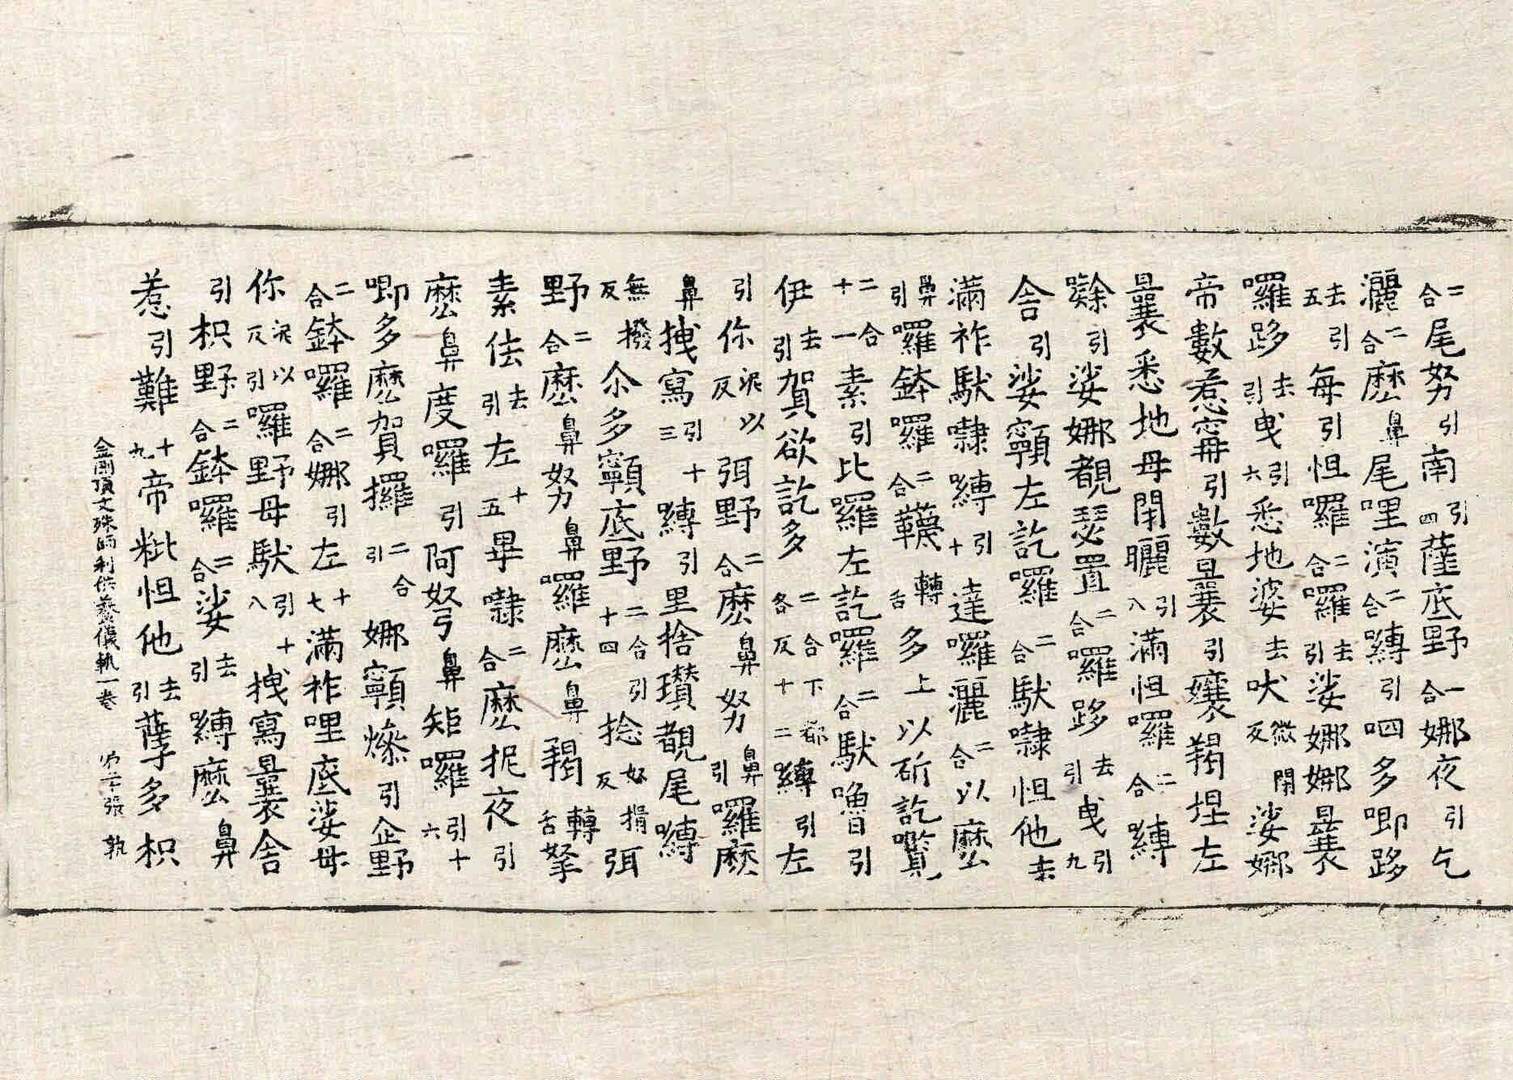 二合尾努引南引四薩底野二合娜夜引乞
灑二合麼鼻尾哩演二合嚩引呬多唧跢
去引五每引怛囉二合囉去引娑娜娜曩
囉跢去引曳引六悉地娑去吠微閉反娑娜
帝數惹甯引數曩引孃羯埕左
曩悉地母閉曬引八滿怛囉二合嚩
引娑娜覩瑟置二合囉跢去引曳引九
舍引娑顊左訖囉二合馱隸怛他去
滿祚馱隸嚩引十達囉灑二合以麼
鼻引囉鉢囉二合韈轉舌多上以斫訖
二合十一素引比羅左訖囉二合馱嚕引
伊去引賀欲訖多二合下都各反十二嚩引左
引你泥以反弭野二合麼鼻努鼻引囉麼
鼻拽寫引十三嚩引里捨瓚覩尾嚩
無撥反尒多顊底野二合引十四捻奴揖反弭
野二合麼鼻努鼻囉麼鼻羯轉舌拏
素佉去引左十五畢隸二合麼抳夜引
麼鼻度囉引阿努鼻矩囉引十六
唧多麼賀攞二合引娜顊燦引企野
二合鉢囉二合娜引左十七滿祚哩底娑母
你泥以反引囉野母馱引十八拽寫曩舍
引枳野二合鉢囉二合娑去引嚩麼鼻
惹引難十九帝粃怛他去引薩多枳
金剛頂文殊師利供養儀軌一卷 張 執